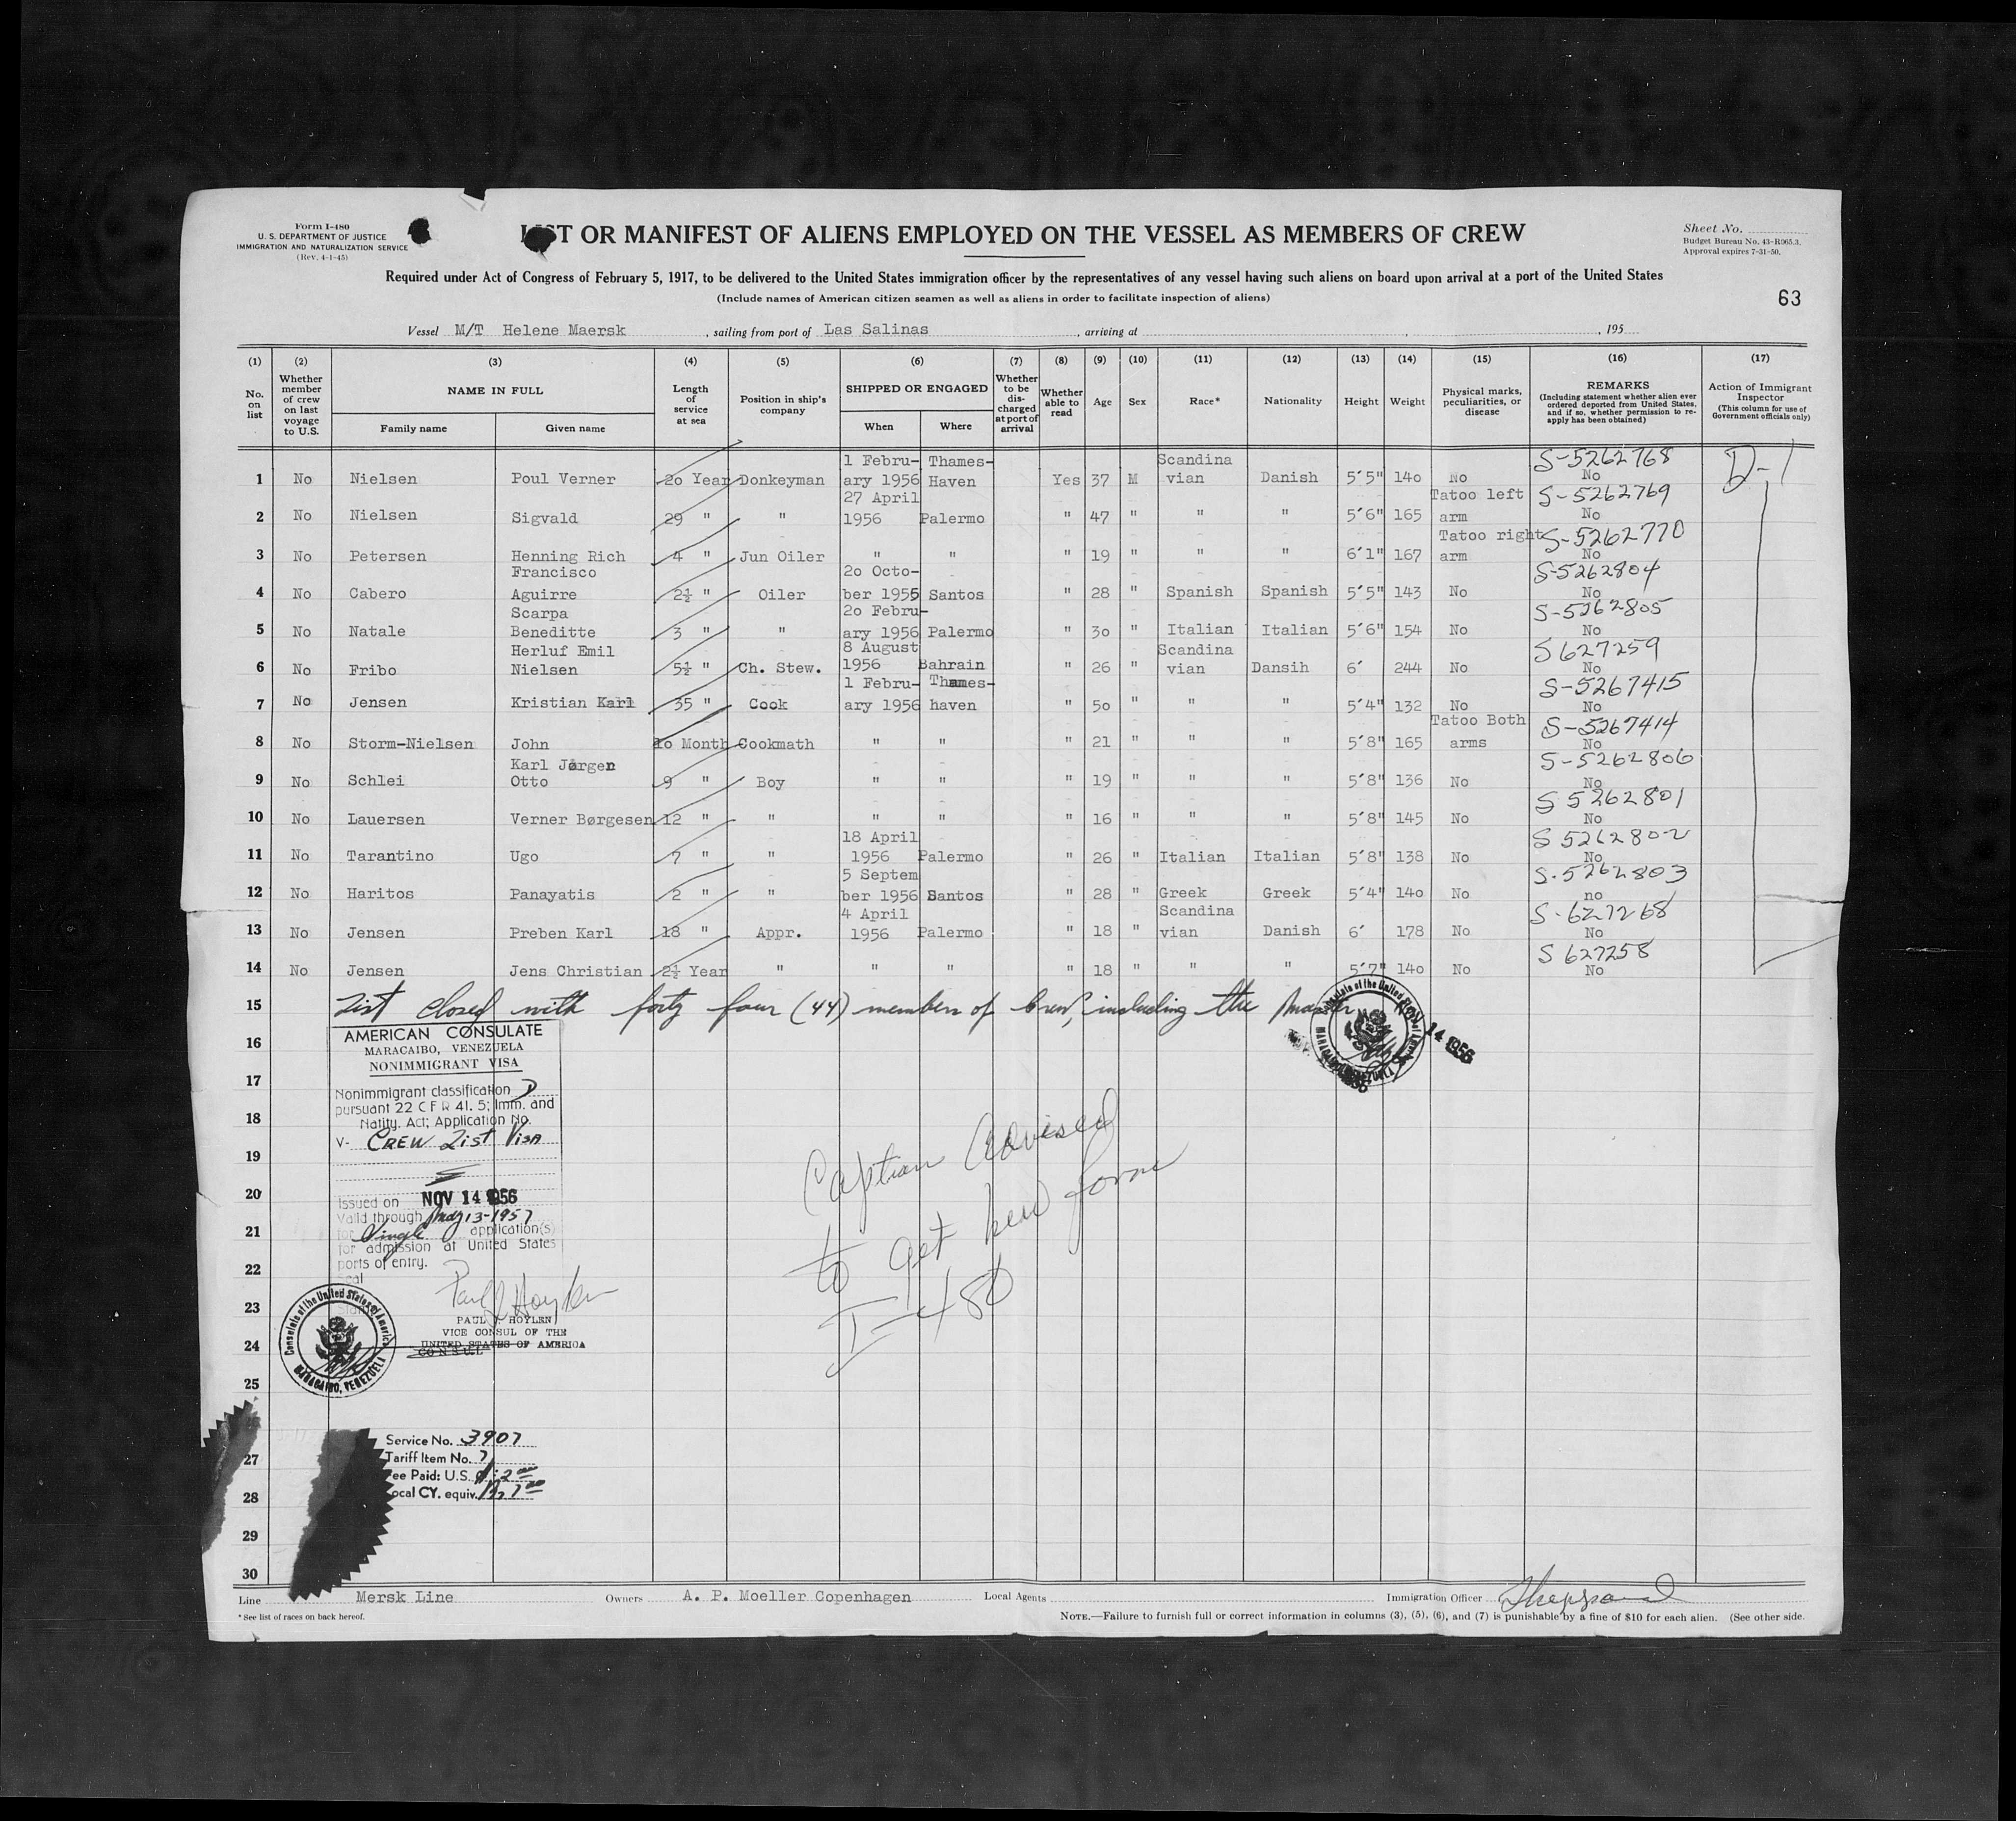 Form I-480
U. S. DEPARTMENT OF JUSTICE
IMMIGRATION AND NATURALIZATION SERVICE
(Rev. 4-1-45)
LIST OR MANIFEST OF ALIENS EMPLOYED ON THE VESSEL AS MEMBERS OF CREW
Sheet No.
Budget Bureau No. 43-R065.3.
Approval expires 7-31-50.
Required under Act of Congress of February 5, 1917, to be delivered to the United States immigration officer by the representatives of any vessel having such aliens on board upon arrival at a port of the United States
(Include names of American citizen seamen as well as aliens in order to facilitate inspection of aliens)
63
Vessel M/T Helene Maersk, sailing from port of Las Salinas, arriving at , , 195
(1) (2) (3) (4) (5) (6) (7) (8) (9) (10) (11) (12) (13) (14) (15) (16) (17)
No. on list
Whether member of crew on last voyage to U.S.
NAME IN FULL
Family name Given name
Length of service at sea
Position in ship's company
SHIPPED OR ENGAGED
When Where
Whether to be discharged at port of arrival
Whether able to read
Age
Sex
Race*
Nationality
Height
Weight
Physical marks, peculiarities, or disease
REMARKS
(Including statement whether alien ever ordered deported from United States, and if so, whether permission to re-apply has been obtained)
Action of Immigrant Inspector
(This column for use of Government officials only)
1 No Nielsen Poul Verner 2o Year Donkeyman 1 Febru-ary 1956 Thames-Haven Yes 37 M Scandina vian Danish 5'5" 14o No S-5262768 No D-1
2 No Nielsen Sigvald 29 " " 27 April 1956 Palermo " 47 " " " 5'6" 165 Tatoo left arm S-5262769 No
3 No Petersen Henning Rich 4 " Jun Oiler " " " 19 " " " 6'1" 167 Tatoo right arm S-5262770 No
4 No Cabero Francisco Aguirre 2½ " Oiler 2o Octo-ber 1955 Santos " 28 " Spanish Spanish 5'5" 143 No S-5262804 No
5 No Natale Scarpa Beneditte 3 " " 2o Febru-ary 1956 Palermo " 3o " Italian Italian 5'6" 154 No S-5262805 No
6 No Fribo Herluf Emil Nielsen 5½ " Ch. Stew. 8 August 1956 Bahrain " 26 " Scandina vian Dansih 6' 244 No S 627259 No
7 No Jensen Kristian Karl 35 " Cook 1 Febru-ary 1956 Thames-haven " 5o " " " 5'4" 132 No S-5267415 No
8 No Storm-Nielsen John 1o Month Cookmath " " " 21 " " " 5'8" 165 Tatoo Both arms S-5267414 No
9 No Schlei Karl Jørgen Otto 9 " Boy " " " 19 " " " 5'8" 136 No S-5262806 No
10 No Lauersen Verner Børgesen 12 " " " " " 16 " " " 5'8" 145 No S 5262801 No
11 No Tarantino Ugo 7 " " 18 April 1956 Palermo " 26 " Italian Italian 5'8" 138 No S 5262802 No
12 No Haritos Panayatis 2 " " 5 Septem ber 1956 Santos " 28 " Greek Greek 5'4" 14o No S-5262803 no
13 No Jensen Preben Karl 18 " Appr. 4 April 1956 Palermo " 18 " Scandina vian Danish 6' 178 No S-627268 No
14 No Jensen Jens Christian 2½ Year " " " " 18 " " " 5'7" 14o No S 627258 No
15 List closed with forty four (44) members of crew, including the Master
16
17
18
19
20
21
22
23
24
25
27
28
29
30
AMERICAN CONSULATE
MARACAIBO, VENEZUELA
NONIMMIGRANT VISA
Nonimmigrant classification D
pursuant 22 C F R 41. 5; Imm. and
Natity. Act; Application No.
V- CREW List Visa
Issued on NOV 14 1956
Valid through May 13-1957
for Single application(s)
for admission at United States
ports of entry.
Seal
PAUL J HOYLEN
VICE CONSUL OF THE
UNITED STATES OF AMERICA
CONSUL
Consulate of the United States of America
MARACAIBO, VENEZUELA
NOV 14 1956
Captian Advised
to get new form
I-480
Service No. 3907
Tariff Item No. 7
Fee Paid: U.S. $2.00
Local CY. equiv.
Line Mersk Line Owners A. P. Moeller Copenhagen Local Agents Immigration Officer Sheppard
* See list of races on back hereof.
NOTE.—Failure to furnish full or correct information in columns (3), (5), (6), and (7) is punishable by a fine of $10 for each alien. (See other side.